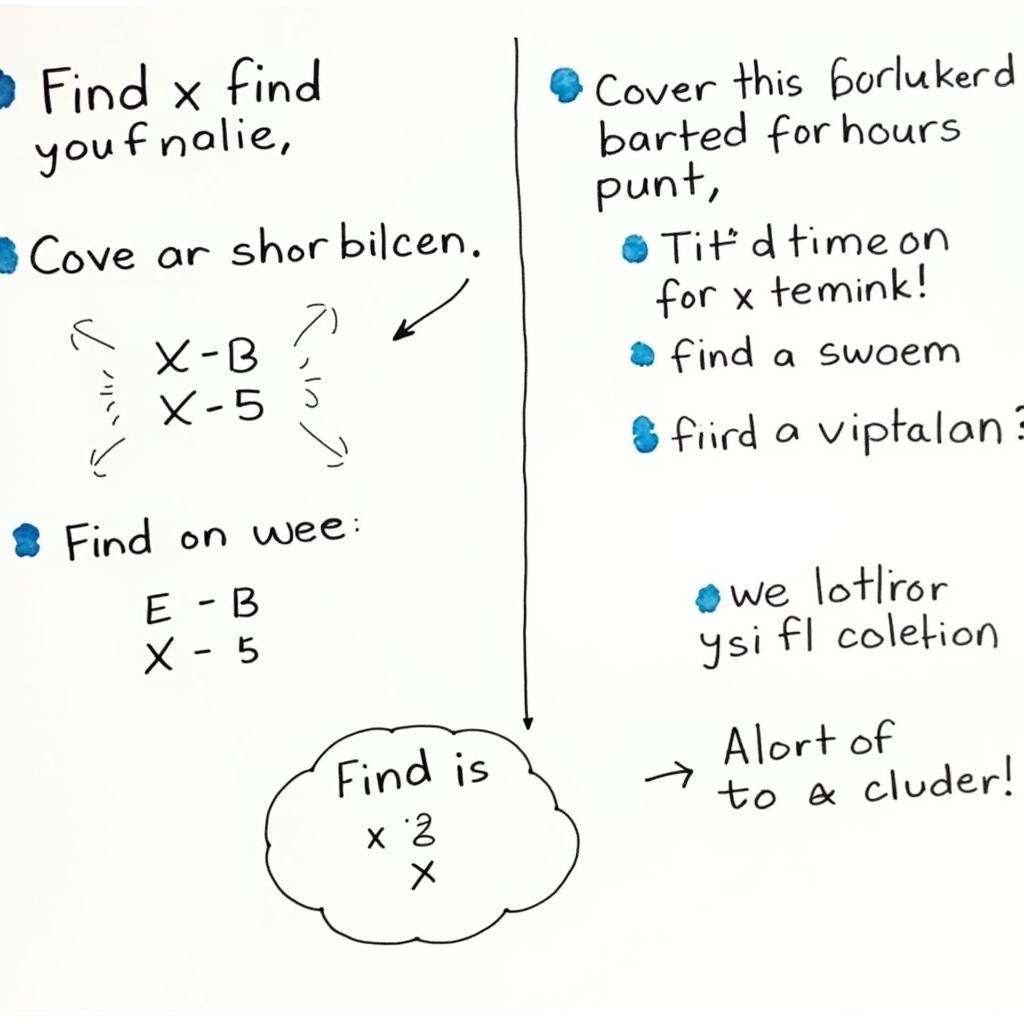 Find x find
youf nalie,
Cove ar shor bilcen.
X-B
X-5
Find on wee:
E - B
X - 5
Find is
x
X
Cover this borlukerd
barted for hours
punt,
Tit'd time on
for x temink!
find a swoem
fiird a viptalan?
we lotliror
ysi fl coletion
→ Alort of
to a cluder!